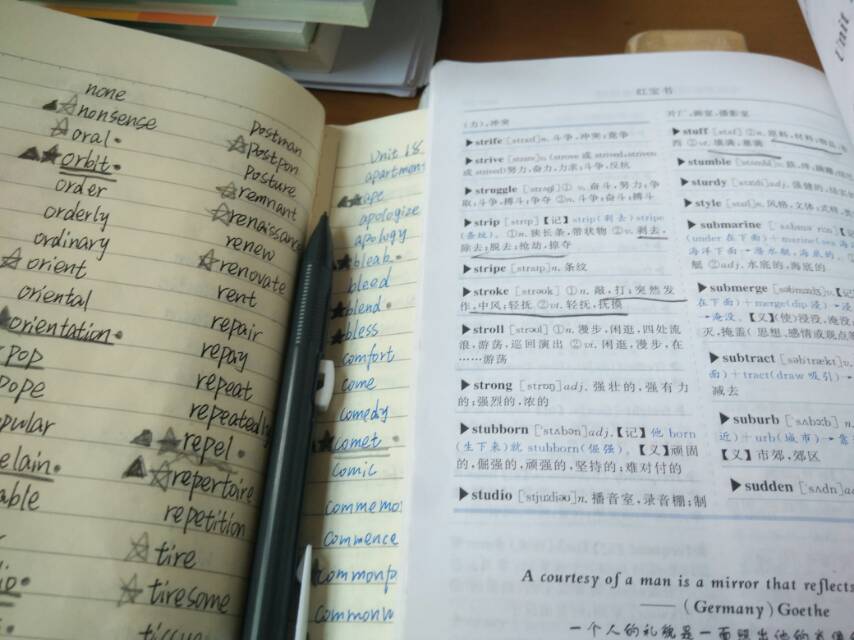 none
nonsense
oral
orbit
order
orderly
ordinary
orient
oriental
orientation
pop
pope
able
postman
postpon
posture
remnant
renaissance
renew
renovate
rent
repair
repay
repeat
repeatedly
repel
repertoire
repetition
tire
tiresome
Unit 18
apartment
ape
apologize
apology
bleab
bleed
blend
bless
comfort
come
comedy
comet
comic
commemo
commence
commonp
commonw
红宝书
(力),冲突
strife [straɪf]n. 斗争,冲突;竞争
strive [straɪv]vi. (strove 或 strived,striven
或 strived)努力,奋力,力求;斗争,反抗
struggle ①vi. 奋斗,努力;争
取;斗争;搏斗;争夺 ②n. 斗争;奋斗;搏斗
strip [strɪp]【记】strip(剥去)stripe
(条纹)。①n. 狭长条,带状物 ②v. 剥去,
除去;脱去;抢劫,掠夺
stripe [straɪp]n. 条纹
stroke [strəʊk] ①n. 敲,打;突然发
作,中风;轻抚 ②vt. 轻抚,抚摸
stroll [strəʊl] ①n. 漫步,闲逛,四处流
浪,游荡,巡回演出 ②vi. 闲逛,漫步,在
……游荡
strong [strɒŋ]adj. 强壮的,强有力
的;强烈的,浓的
stubborn ['stʌbən]adj.【记】他 born
(生下来)就 stubborn(倔强)。【义】顽固
的,倔强的,顽强的,坚持的;难对付的
studio ['stjuːdiəʊ]n. 播音室,录音棚;制
片厂,画室,摄影室
stuff [stʌf] ①n. 原料,材料;物品
西 ②vt. 填满,塞满
stumble
sturdy
style [staɪl]n. 风格,文体;式样
submarine
(under 在下面)+marine(sea 海
海洋下面→潜水艇,海底的。
艇 ②adj. 水底的,海底的
submerge
在下面)+merge(dip 浸)→浸
→淹没。【义】(使)浸没,淹没
灭,掩盖(思想、感情或观点等
subtract [səb'trækt]v.
面)+tract(draw 吸引)→
减去
suburb ['sʌbɜːb] n.
近)+urb(城市)→靠
【义】市郊,郊区
sudden ['sʌdn]a
A courtesy of a man is a mirror that reflects
—— (Germany) Goethe
一个人的礼貌是一面照出他的肖像
Unit